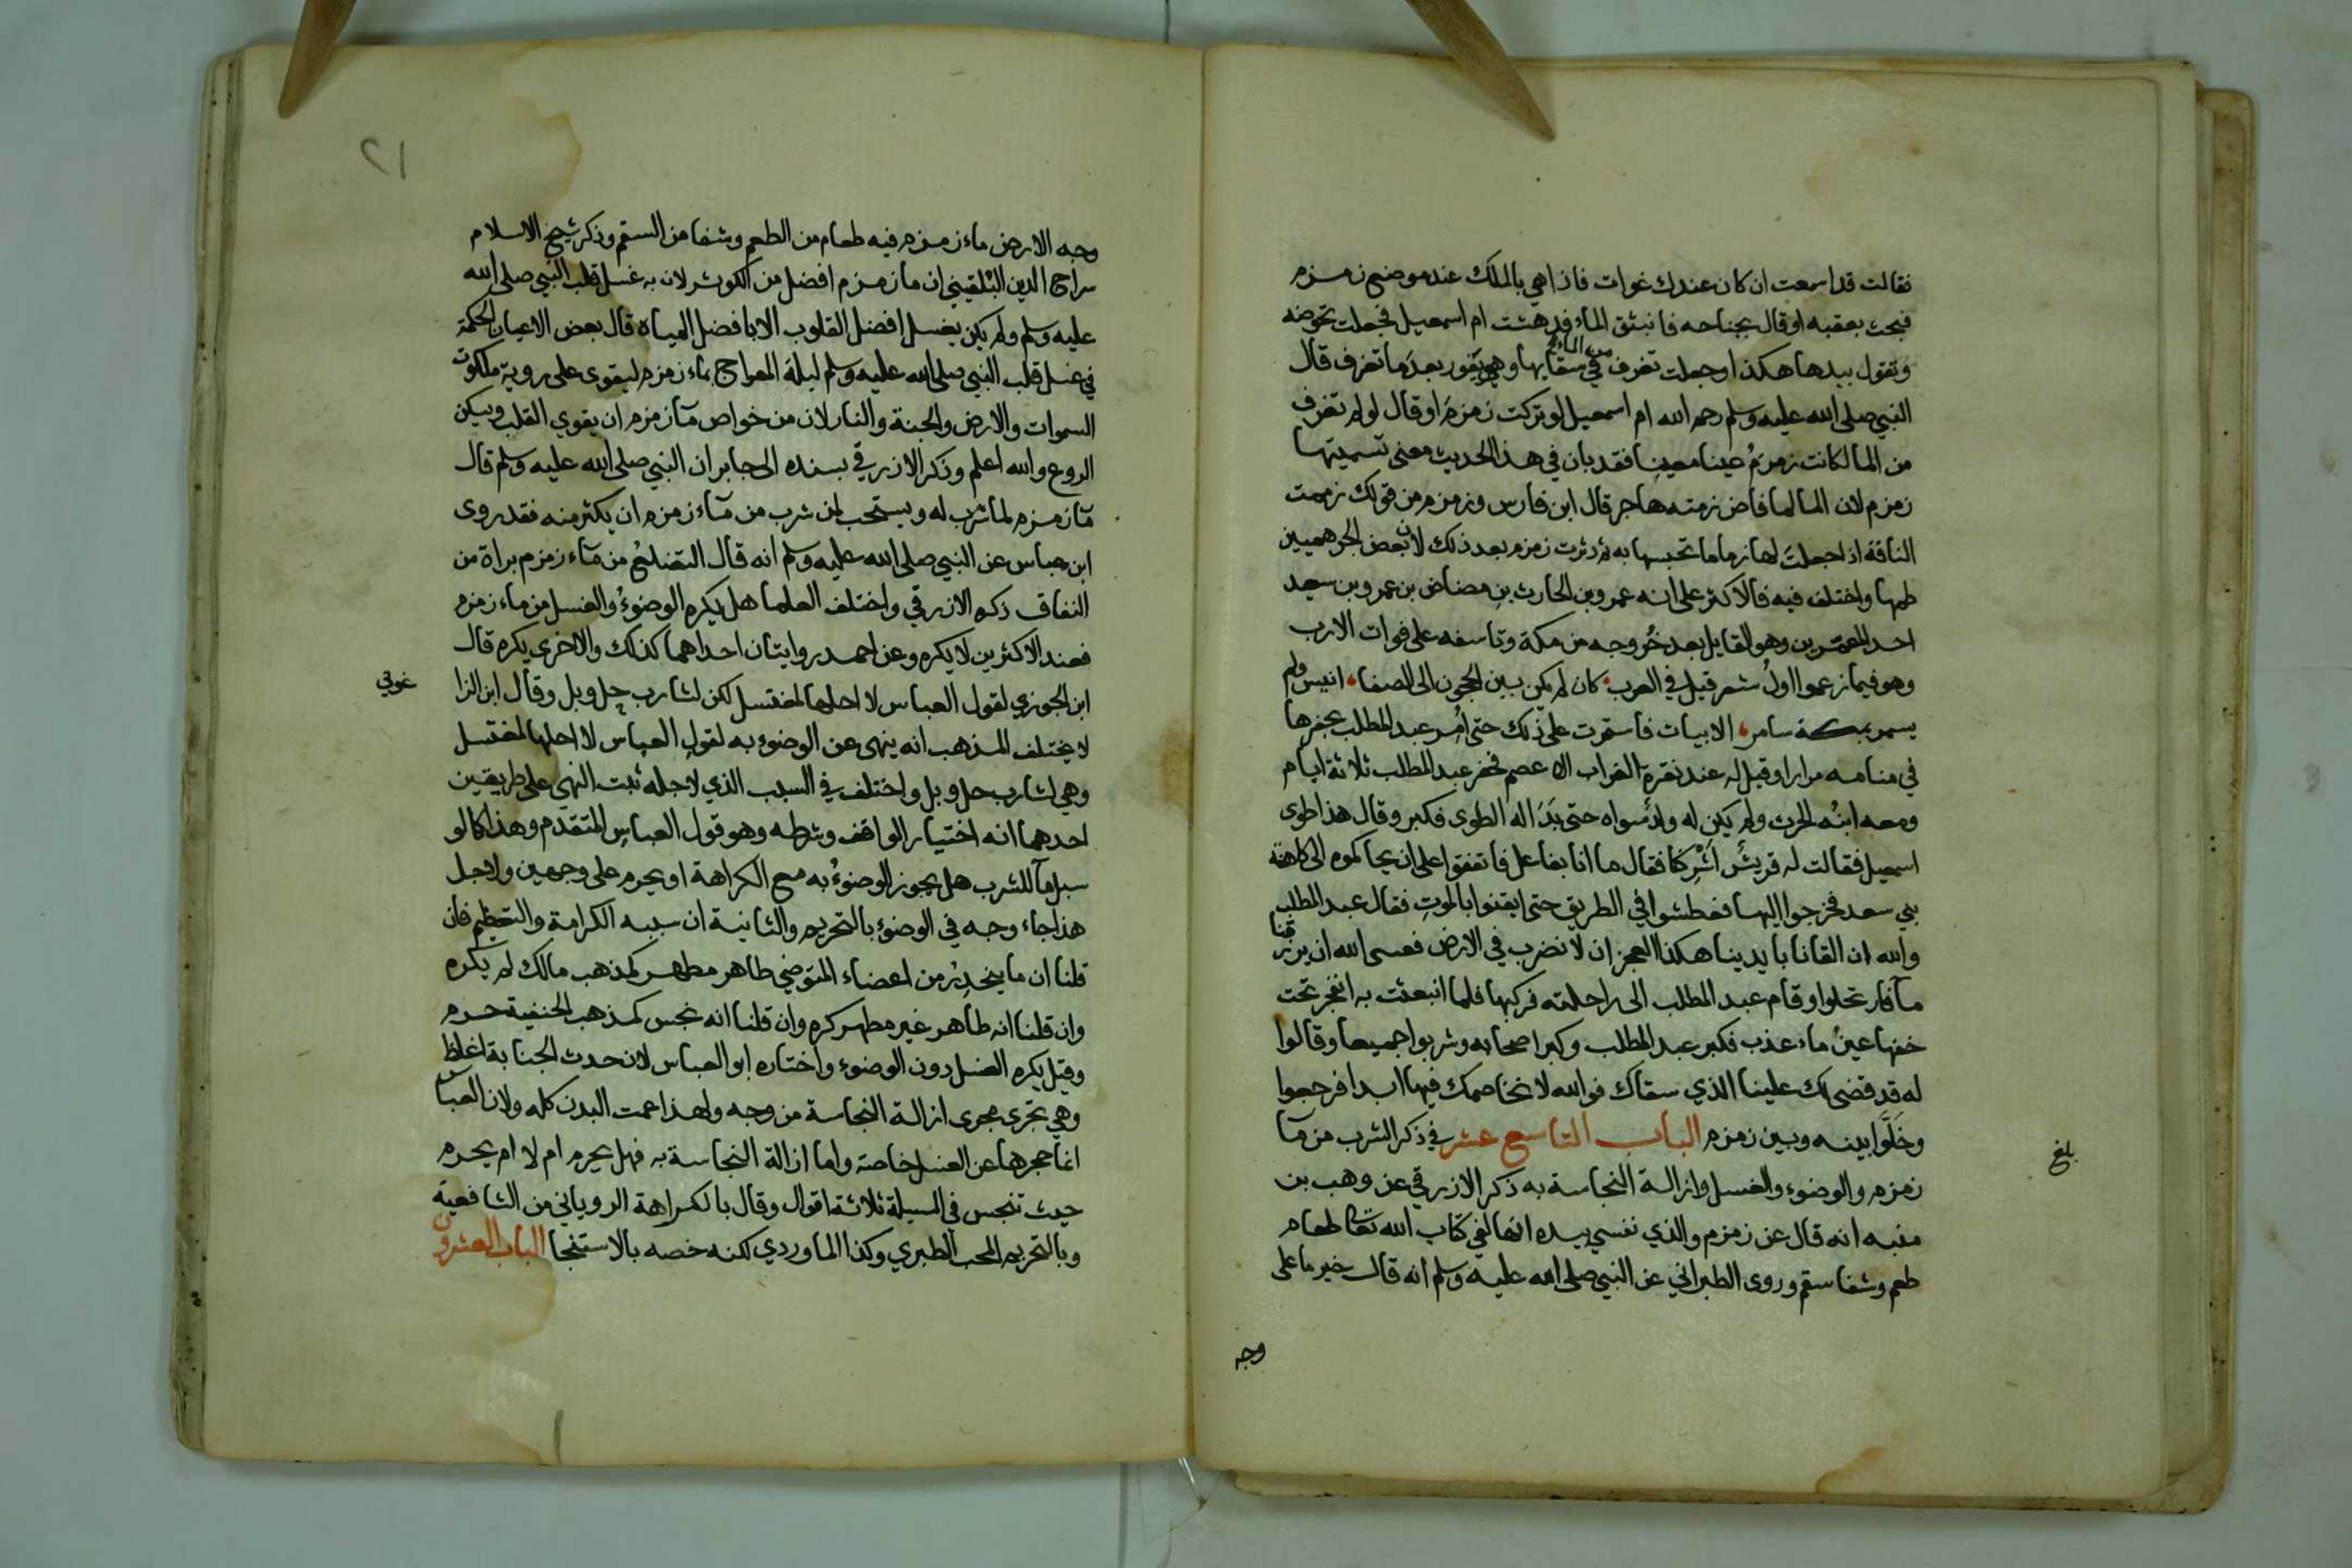 فقالت قد اسمعت ان كان عندك غوات فاذا هي بالملك عند موضع زمزم
فبحث بعقبه او قال بجناحه فانبثق الماء فدهشت ام اسمعيل فجعلت تحوضه
وتقول بيدها هكذا وجعلت تغرف من الماء في سقايها وهي يفور بعدما تغرف قال
النبي صلى الله عليه وسلم رحم الله ام اسمعيل لو تركت زمزم او قال لو لم تغرف
من الما لكانت زمزم عينا معينا فقد بان في هذا الحديث معنى تسميتها
زمزم لان الما لما فاض زمته هاجر قال ابن فارس وزمزم من قولك زممت
الناقة اذا جعلت لها زماما تحبسها به ثم دثرت زمزم بعد ذلك لان بعض الجرهميين
طمها واختلف فيه فالاكثر على انه عمرو بن الحارث بن مضاض بن عمرو بن سعيد
احد المعمرين وهو القايل بعد خروجه من مكة وتاسفه على فوات الارب
وهو فيما زعموا اول شعر قيل في العرب كان لم يكن بين الحجون الى الصفا انيس ولم
يسمر بمكة سامر الابيات فاستمرت على ذلك حتى امر عبد المطلب بحفرها
في منامه مرارا وقيل له عند نقرة الغراب الاعصم فحفر عبد المطلب ثلاثة ايام
ومعه ابنه الحرث ولم يكن له ولد سواه حتى بدا له الطوى فكبر وقال هذا طوى
اسمعيل فقالت له قريش اشركنا فقال ما انا بفاعل فاتفقوا على ان يحاكموه الى كاهنة
بني سعد فخرجوا اليها فعطشوا في الطريق حتى ايقنوا بالموت فقال عبد المطلب
والله ان القانا بايدينا هكذا العجز ان لا نضرب في الارض فعسى الله ان يرزقنا
مآ فارتحلوا وقام عبد المطلب الى راحلته فركبها فلما انبعثت به انفجر تحت
خفها عين ماء عذب فكبر عبد المطلب وكبر اصحابه وشربوا جميعا وقالوا
له قد قضى لك علينا الذي سقاك فوالله لا نخاصمك فيها ابدا فرجعوا
وخلوا بينه وبين زمزم الباب التاسع عشر في ذكر الشرب من مآ
زمزم والوضوء والغسل وازالة النجاسة به ذكر الازرقي عن وهب بن
منبه انه قال عن زمزم والذي نفسي بيده انها لفي كتاب الله تعا طعام
طعم وشفا سقم وروى الطبراني عن النبي صلى الله عليه وسلم انه قال خير ما على
وجه
بلغ
٢١
وجه الارض ماء زمزم فيه طعام من الطعم وشفا من السقم وذكر شيخ الاسلام
سراج الدين البلقيني ان ما زمزم افضل من الكوثر لان به غسل قلب النبي صلى الله
عليه وسلم ولم يكن يغسل افضل القلوب الا بافضل المياه قال بعض الاعيان الحكمة
في غسل قلب النبي صلى الله عليه وسلم ليلة المعراج بماء زمزم ليقوى على روية ملكوت
السموات والارض والجنة والنار لان من خواص مآ زمزم ان يقوي القلب ويسكن
الروع والله اعلم وذكر الازرقي بسنده الى جابر ان النبي صلى الله عليه وسلم قال
مآ زمزم لما شرب له ويستحب لمن شرب من مآء زمزم ان يكثر منه فقد روى
ابن عباس عن النبي صلى الله عليه وسلم انه قال التضلع من مآء زمزم براة من
النفاق ذكره الازرقي واختلف العلما هل يكره الوضوء والغسل من ماء زمزم
فعند الاكثرين لا يكره وعن احمد روايتان احداهما كذلك والاخرى يكره قال
ابن الجوزي لقول العباس لا احلها لمغتسل لكن لشارب حل وبل وقال ابن الزا
غوني
لا يختلف المذهب انه ينهى عن الوضوء به لقول العباس لا احلها لمغتسل
وهي لشارب حل وبل واختلف في السبب الذي لاجله ثبت النهي على طريقين
احدهما انه اختيار الواقف وشرطه وهو قول العباس المتقدم وهذا كما لو
سبل مآ للشرب هل يجوز الوضوء به مع الكراهة او يحرم على وجهين ولاجل
هذا جاء وجه في الوضوء بالتحريم والثانية ان سببه الكرامة والتعظيم فان
قلنا ان ما ينحدر من اعضاء المتوضي طاهر مطهر كمذهب مالك لم يكره
وان قلنا انه طاهر غير مطهر كره وان قلنا انه نجس كمذهب الحنفية حرم
وقيل يكره الغسل دون الوضوء واختاره ابو العباس لان حدث الجنابة اغلظ
وهي تجرى مجرى ازالة النجاسة من وجه ولهذا عمت البدن كله ولان العباس
انما حجرها عن الغسل خاصة واما ازالة النجاسة به فهل يحرم ام لا ام يحرم
حيث تنجس في المسيلة ثلاثة اقوال وقال بالكراهة الروياني من الشافعية
وبالتحريم المحب الطبري وكذا الماوردي لكنه خصه بالاستنجا الباب العشرون